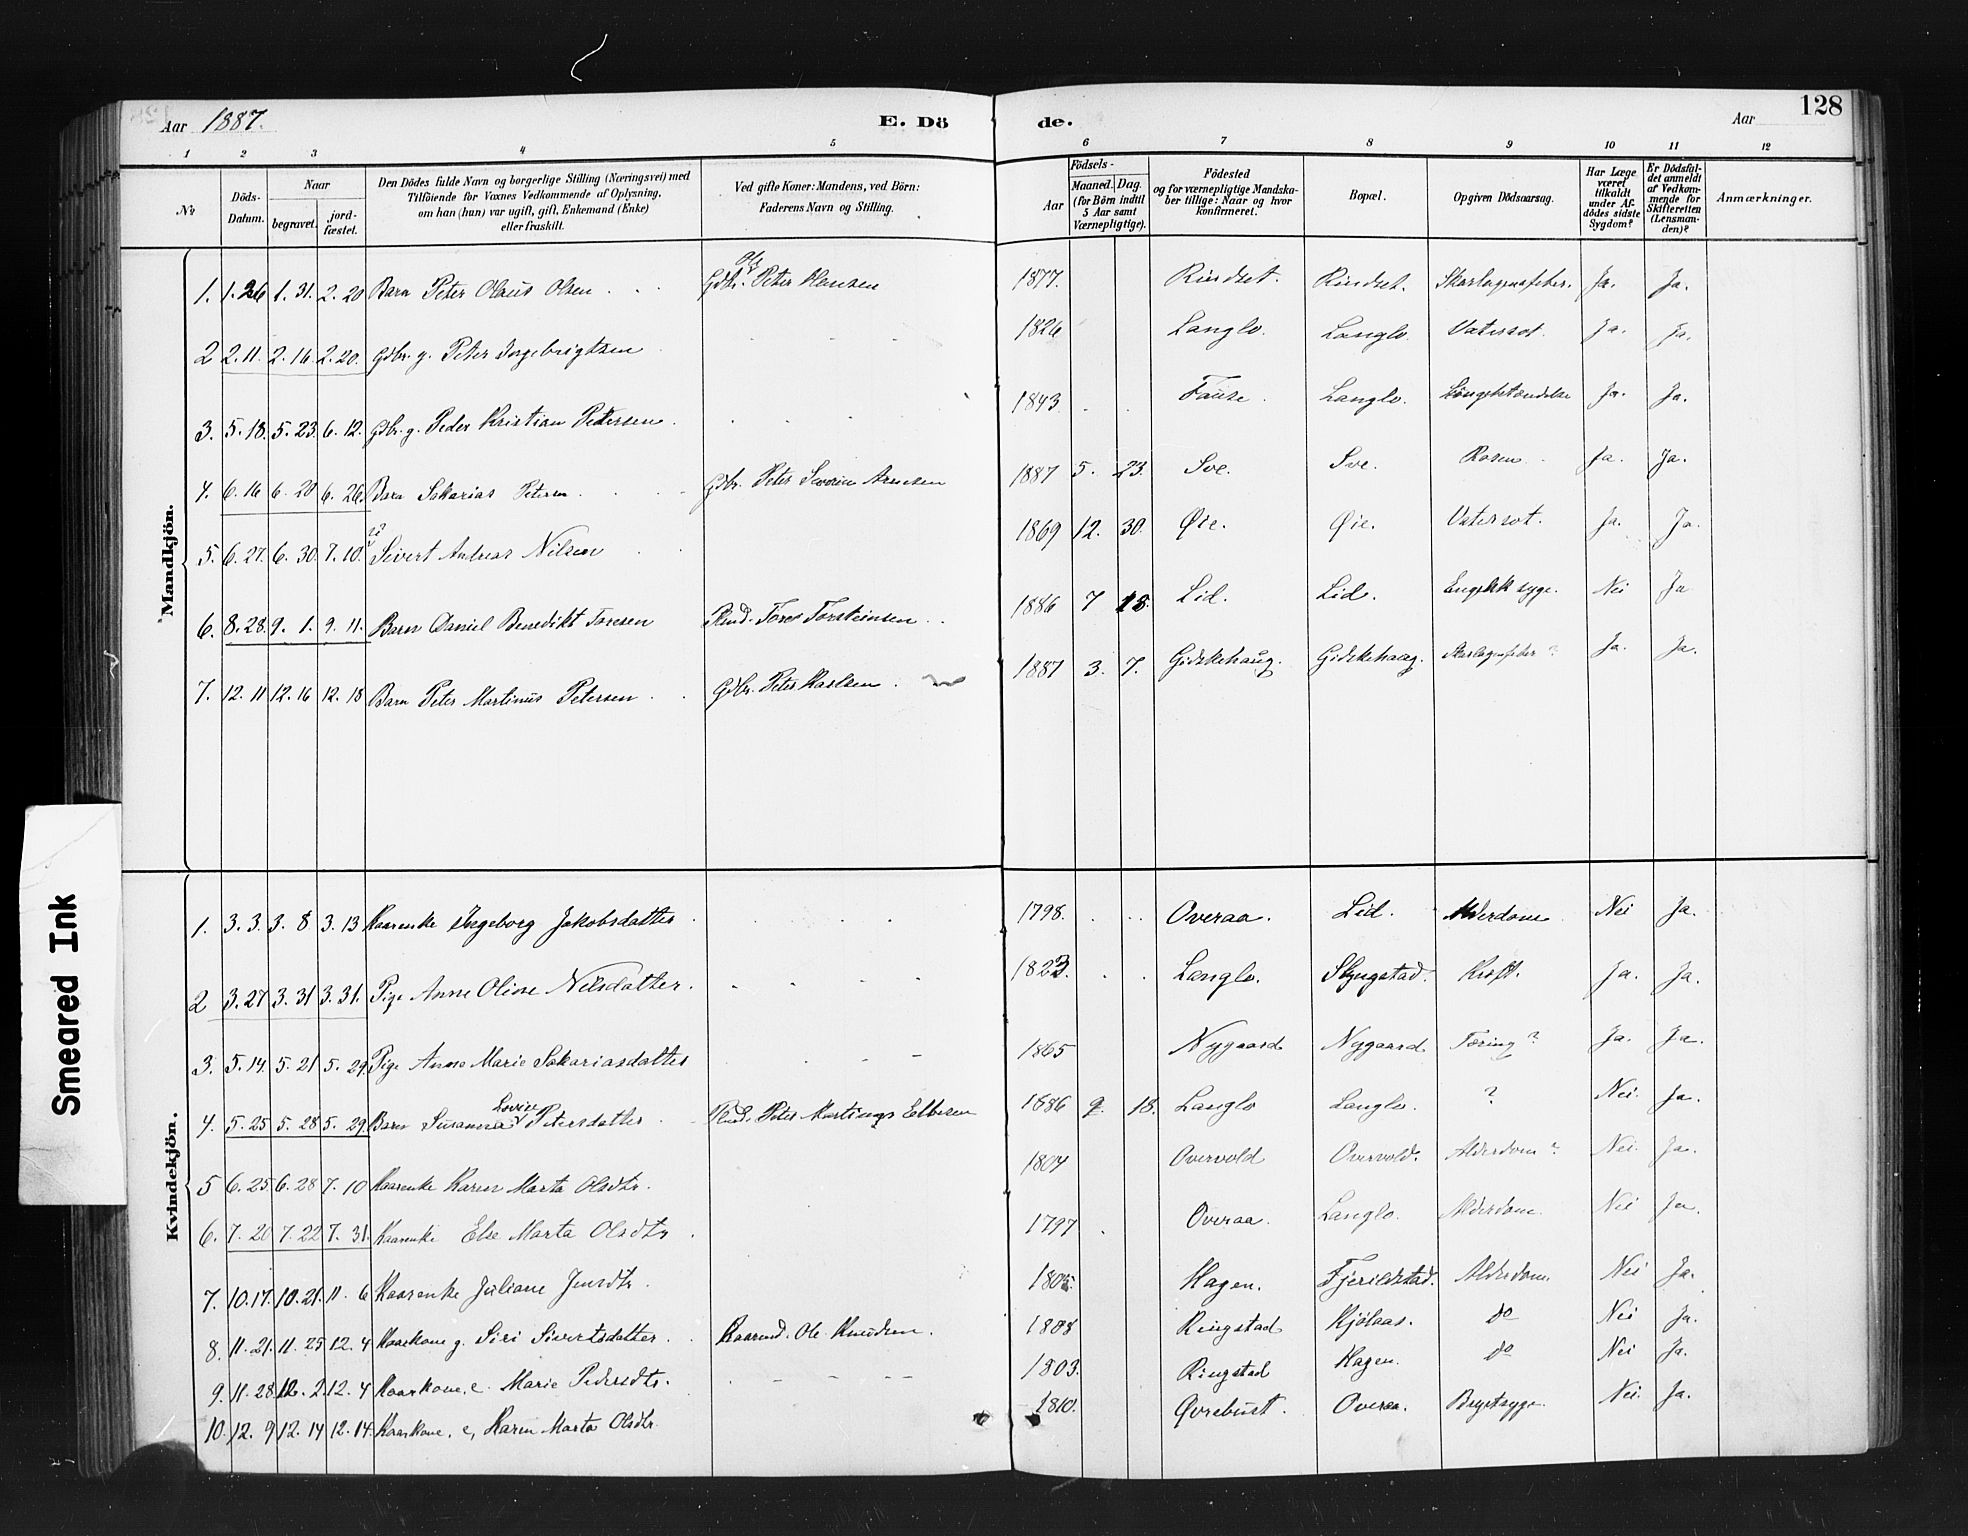 Aar 1887. E. Dö de. Aar 128
1 2 3 4 5 6 7 8 9 10 11 12
№ Döds-Datum. Naar begravet. jord-fæstet. Den Dödes fulde Navn og borgerlige Stilling (Næringsvei) med Tilföiende for Voxnes Vedkommende af Oplysning, om han (hun) var ugift, gift, Enkemand (Enke) eller fraskilt. Ved gifte Koner: Mandens, ved Börn: Faderens Navn og Stilling. Födsels- Aar Maaned. Dag. (for Börn indtil 5 Aar samt Værnepligtige). Födested og for værnepligtige Mandskaber tillige: Naar og hvor konfirmeret. Bopæl. Opgiven Dödsaarsag. Har Læge været tilkaldt under Afdödes sidste Sygdom? Er Dödsfaldet anmeldt af Vedkommende for Skifteretten (Lensmanden)? Anmærkninger.
Mandkjön.
1. 1.26 1. 31. 2. 20 Barn Peter Olaus Olsen Gdbr. Ole Peter Hansen 1877. Rindset. Rindset. Skarlagensfeber. Ja. Ja.
2 2. 11. 2. 16. 2. 20. Gdbr. g. Peter Ingebrigtsen 1826 Langlo. Langlo. Vatersot. Ja. Ja.
3. 5. 18. 5. 23. 6. 12. Gdbr. g. Peder Kristian Petersen. 1843 Fause. Langlo. Lungebetændelse Ja. Ja.
4. 6. 16 6. 20 6. 26. Barn Sakarias Petersen. Gdbr. Peter Severin Arnesen 1887 5. 23. Sve. Sve. Rosen Ja. Ja.
5. 6. 27. 6. 30. 7. 10. Sivert Andreas Nilsen 1869 12. 30. Øie. Øie. Vatersot. Ja. Ja.
6. 8. 28. 9. 1. 9. 11. Barn Daniel Benedikt Toresen Tore Torsteinsen 1886 7 18. Lid. Lid. Engelsk syge. Nei Ja
7. 12. 11 12. 16 12. 18 Barn Peter Martinus Petersen Gdbr. Peter Karlsen 1887 3. 7. Gidskehaug. Gidskehaug. Skarlagensfeber ? Ja. Ja.
Kvindekjön.
1. 3. 3. 3. 8 3. 13 Kaarenke Ingeborg Jakobsdatter 1798. Overaa. Lid. Alderdom Nei Ja.
2 3. 27 3. 31 3. 31. Pige Anne Oline Nilsdatter. 1823. Langlo. Slyngstad. Kræft. Ja. Ja.
3. 5. 14. 5. 21 5. 29. Pige Anne Marie Sakariasdatter 1865 Nygaard Nygaard Tæring ? Ja. Ja.
4. 5. 25 5. 28 5. 29. Barn Susanna Lovise Petersdatter Peter Martinus Ellesen 1886 9. 18. Langlo Langlo. ? Nei. Ja.
5 6. 25 6. 28 7. 10 Kaarenke Karen Marta Olsdtr. 1804 Overvold Overvold. Alderdom ? Nei. Ja.
6. 7. 20 7. 22 7. 31. Kaarenke Else Marta Olsdtr 1797 Overaa. Langlo. Alderdom. Nei Ja.
7. 10. 17. 10. 21. 11. 6 Kaarenke Juliane Jensdtr. Hagen. Fjerildstad. Alderdom. Nei Ja.
8. 11. 21. 11. 25 12. 4 Kaarkone g. Siri Sivertsdatter. Kaarmd. Ole Knudsen. 1808 Ringstad Kjølaas. do Nei Ja.
9. 11. 28. 12. 2. 12. 4 Kaarkone, e. Marie Pedersdtr. 1803. Ringstad Hagen. do Nei Ja.
10. 12. 9 12. 14 12. 14. Kaarkone, e, Karen Marta Olsdtr. 1810. Øvrebust. Overaa. Brystsyge Nei. Ja.
Smeared Ink